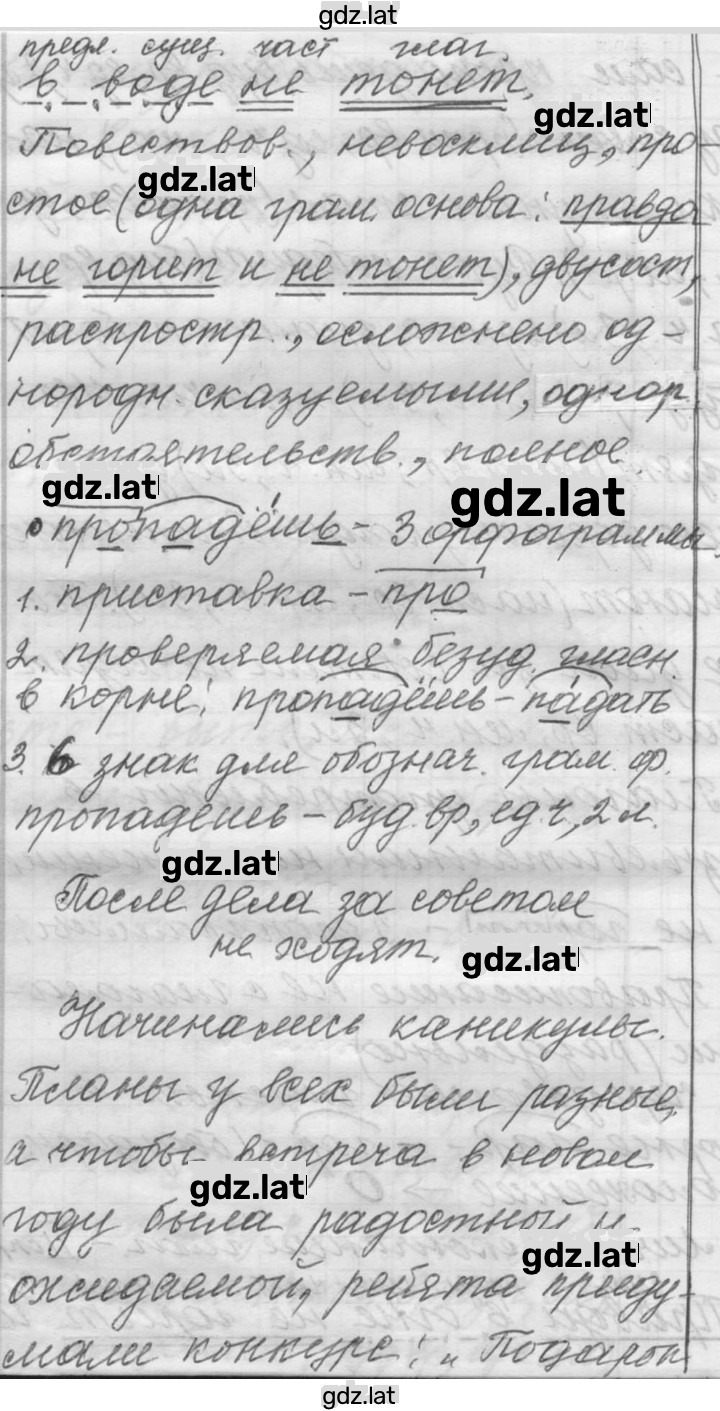 gdz.lat
предл. сущ. част глаг.
в воде не тонет.
gdz.lat
Повествов., невосклиц., про-
gdz.lat
стое (одна грам. основа: правда
не горит и не тонет), двусост.,
распростр., осложнено од-
нородн. сказуемыми, однор.
обстоятельств., полное.
gdz.lat
gdz.lat
пропадёшь - 3 орфограммы.
1. приставка - про
2. проверяемая безуд. гласн.
в корне: пропадёшь - падать
3. ь знак для обознач. грам. ф.
пропадешь - буд. вр., ед. ч., 2 л.
gdz.lat
После дела за советом
не ходят.
gdz.lat
Начинались каникулы.
Планы у всех были разные,
а чтобы встреча в новом
gdz.lat
году была радостной и
gdz.lat
ожидаемой, ребята приду-
мали конкурс: „Подарок
gdz.lat